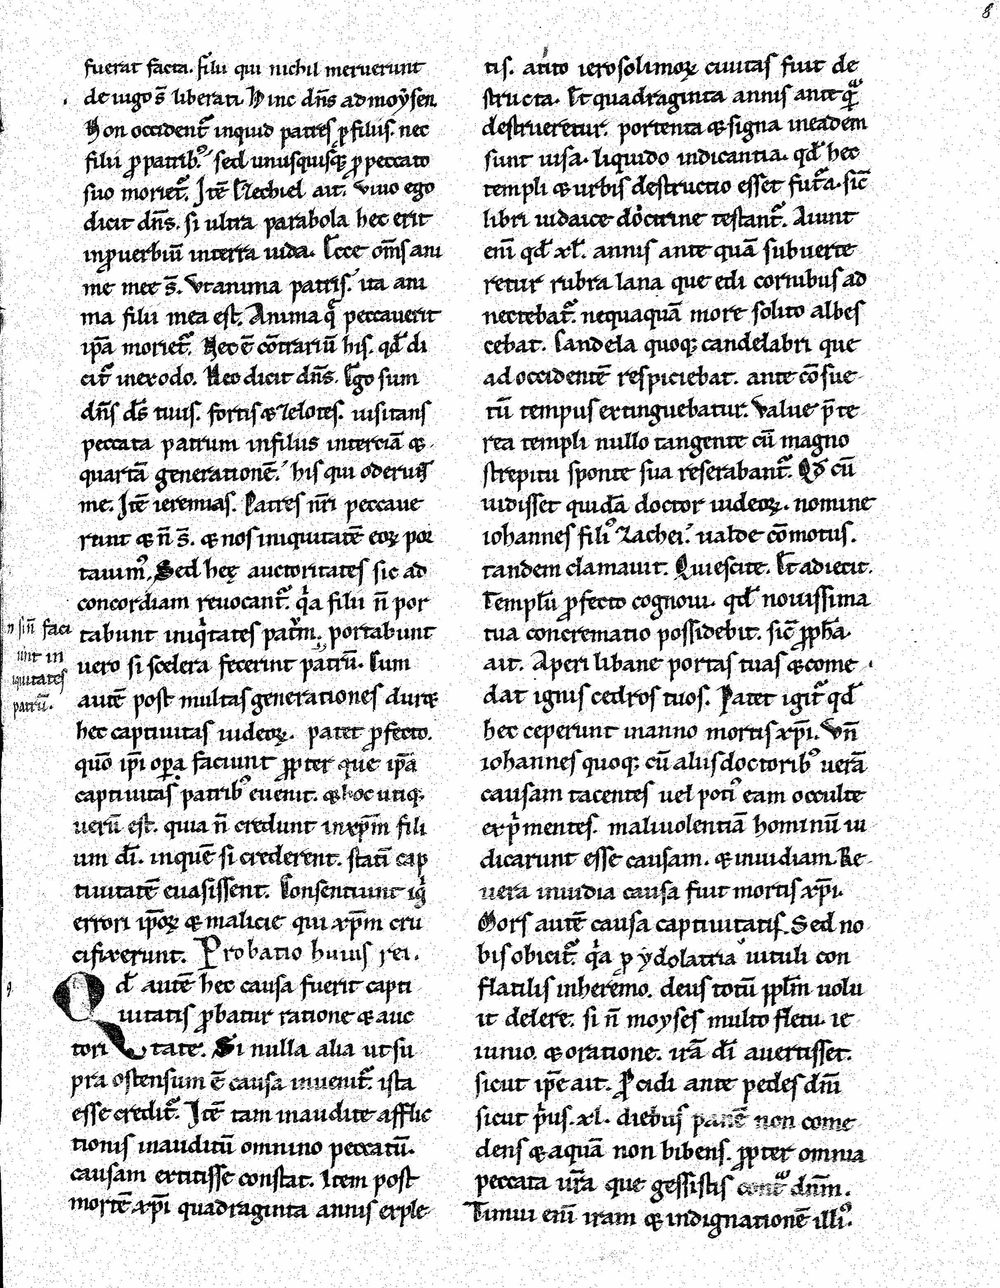 8
fuerat facta. filii qui nichil meruerunt
de iugo sūt liberati. Hinc dn̄s ad moẏsen
Non occident᷑ inquid patres ꝓ filiis. nec
filii ꝓ patrib; sed unusquisq; ꝓ peccato
suo moriet᷑. Itē Ezechiel ait. Viuo ego
dicit dn̄s. si ultra parabola hec erit
in ꝓuerbiū in terra iuda. Ecce om̄s ani
me mee s̄. Vt anima patris. ita ani
ma filii mea est. Anima q̄ peccauerit
ip̄a moriet᷑. Hec ē cōtrariū his. qd̄ di
cit᷑ in exodo. Hec dicit dn̄s. Ego sum
dn̄s ds̄ tuus. fortis & zelotes. uisitans
peccata patrum in filiis in terciā &
quartā generationē. his qui oderunt
me. Itē ieremias. Patres nr̄i peccaue
runt & n̄ s̄. & nos iniquitatē eoꝝ por
tauim᷒. Sed hee auctoritates sic ad
concordiam reuocant᷑. q̇a filii n̄ por
tabunt iniq̇tates patrū. portabunt
n̄ sin̄ faci
unt in
iquitates
patrū.
uero si scelera fecerint patrū. Cum
autē post multas generationes duret
hec captiuitas iudeoꝝ. patet ꝓfecto.
quō ip̄i oꝑa faciunt ꝓpter que ip̄a
captiuitas patrib᷒ euenit. & hoc utiq;
uerū est. quia n̄ credunt in xp̄m fili
um dī. in quē si crederent. statī cap
tiuitatē euasissent. Consentiunt igit᷑
errori ip̄oꝝ & malicie qui xp̄m cru
cifixerunt. Probatio huius rei.
Qd̄ autē hec causa fuerit capti
uitatis ꝓbatur ratione & auc
toritate. Si nulla alia ut su
pra ostensum ē causa inuenit᷑. ista
esse credit᷑. Itē tam inaudite afflic
tionis inauditū omnino peccatū.
causam extitisse constat. Item post
mortē xp̄i quadraginta annis exple
tis. a tito ierosolimoꝝ ciuitas fuit de
structa. Et quadraginta annis ante q̄
destrueretur. portenta & signa in eadem
sunt uisa. liquido indicantia. qd̄ hec
templi & urbis destructio esset fut᷑a. sic̄
libri iudaice doctrine testant᷑. Aiunt
enī qd̄ xl. annis ante quā subuerte
retur rubra lana que edi cornibus ad
nectebat᷑. nequaquā more solito albes
cebat. Candela quoq; candelabri que
ad occidentē respiciebat. ante cōsue
tū tempus extinguebatur. Value p̄te
rea templi nullo tangente cū magno
strepitu sponte sua reserabant᷑. Qd̄ cū
uidisset quidā doctor iudeoꝝ. nomine
iohannes fili᷒ zachei. ualde cōmotus.
tandem clamauit. Quiescite. Et adiecit.
Templū ꝓfecto cognoui. qd̄ nouissima
tua concrematio possidebit. sic̄ ꝓph̄a
ait. Aperi libane portas tuas & come
dat ignis cedros tuos. Patet igit᷑ qd̄
hec ceperunt in anno mortis xp̄i. Vn̄
iohannes quoq; cū aliis doctorib᷒ uerā
causam tacentes uel poti᷒ eam occulte
exp̄mentes. maliuolentiā hominū iu
dicarunt esse causam. & inuidiam. Re
uera inuidia causa fuit mortis xp̄i.
Mors autē causa captiuitatis. Sed no
bis obicit᷑. q̇a ꝓ ydolatria uituli con
flatilis in heremo. deus totū ꝓpl̄m uolu
it delere. si n̄ moyses multo fletu. ie
iunio. & oratione. irā dī auertisset.
sicut ip̄e ait. Ꝓcidi ante pedes dn̄i
sicut ṗus. xl. diebus panē non come
dens & aquā non bibens. ꝓpter omnia
peccata ur̄a que gessistis cont᷑ dn̄m.
Timui enī iram & indignationē illi᷒.